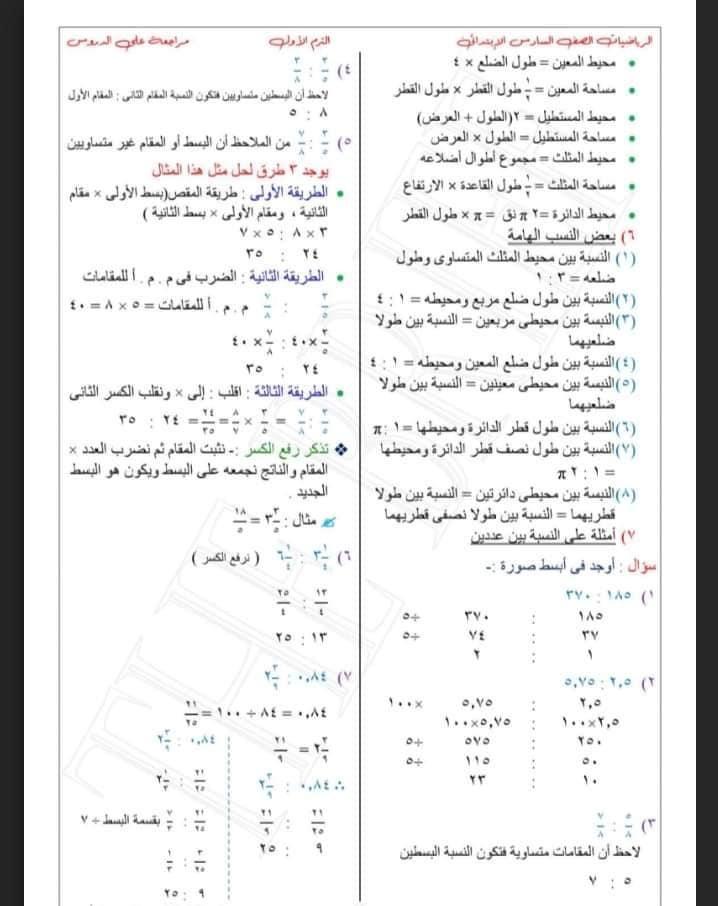 الرياضيات الصف السادس الإبتدائي
الترم الأول
مراجعة على الدروس
• محيط المعين = طول الضلع × ٤
• مساحة المعين = ١/٢ طول القطر × طول القطر
• محيط المستطيل = ٢(الطول + العرض)
• مساحة المستطيل = الطول × العرض
• محيط المثلث = مجموع أطوال أضلاعه
• مساحة المثلث = ١/٢ طول القاعدة × الارتفاع
• محيط الدائرة = ٢ π نق = π × طول القطر
٦) بعض النسب الهامة
(١) النسبة بين محيط المثلث المتساوى وطول
ضلعه = ٣ : ١
(٢) النسبة بين طول ضلع مربع ومحيطه = ١ : ٤
(٣) النسبة بين محيطى مربعين = النسبة بين طولا
ضلعيهما
(٤) النسبة بين طول ضلع المعين ومحيطه = ١ : ٤
(٥) النسبة بين محيطى معينين = النسبة بين طولا
ضلعيهما
(٦) النسبة بين طول قطر الدائرة ومحيطها = ١ : π
(٧) النسبة بين طول نصف قطر الدائرة ومحيطها
= ١ : ٢ π
(٨) النسبة بين محيطى دائرتين = النسبة بين طولا
قطريهما = النسبة بين طولا نصفى قطريهما
٧) أمثلة على النسبة بين عددين
سؤال : أوجد فى أبسط صورة :-
١) ١٨٥ : ٣٧٠
١٨٥ : ٣٧٠ ÷٥
٣٧ : ٧٤ ÷٥
١ : ٢
٢) ٢,٥ : ٥,٧٥
٢,٥ : ٥,٧٥ ×١٠٠
٢,٥×١٠٠ : ٥,٧٥×١٠٠
٢٥٠ : ٥٧٥ ÷٥
٥٠ : ١١٥ ÷٥
١٠ : ٢٣
٣) ٥/٨ : ٧/٨
لاحظ أن المقامات متساوية فتكون النسبة البسطين
٥ : ٧
٤) ٣/٥ : ٣/٨
لاحظ أن البسطين متساويين فتكون النسبة المقام الثانى : المقام الأول
٨ : ٥
٥) ٣/٥ : ٧/٨ من الملاحظ أن البسط أو المقام غير متساويين
يوجد ٣ طرق لحل مثل هذا المثال
• الطريقة الأولى : طريقة المقص(بسط الأولى × مقام
الثانية ، ومقام الأولى × بسط الثانية )
٣ × ٨ : ٥ × ٧
٢٤ : ٣٥
• الطريقة الثانية : الضرب فى م . م . أ للمقامات
٣/٥ : ٧/٨ م . م . أ للمقامات = ٥ × ٨ = ٤٠
٣/٥ ×٤٠ : ٧/٨ × ٤٠
٢٤ : ٣٥
• الطريقة الثالثة : اقلب : إلى × ونقلب الكسر الثانى
٣/٥ : ٧/٨ = ٣/٥ × ٨/٧ = ٢٤/٣٥ = ٢٤ : ٣٥
❖ تذكر رفع الكسر :- نثبت المقام ثم نضرب العدد ×
المقام والناتج نجمعه على البسط ويكون هو البسط
الجديد .
مثال : ٣ ٣/٥ = ١٨/٥
٦) ٣ ١/٤ : ٦ ١/٤ ( نرفع الكسر )
١٣/٤ : ٢٥/٤
١٣ : ٢٥
٧) ٠,٨٤ : ٢ ٣/٩
٠,٨٤ = ٨٤ ÷ ١٠٠ = ٢١/٢٥
٢ ٣/٩ = ٢١/٩
∴ ٠,٨٤ : ٢ ٣/٩
٢١/٢٥ : ٢١/٩
٩ : ٢٥
٠,٨٤ : ٢ ٣/٩
٢١/٢٥ : ٢ ١/٣
٢١/٢٥ : ٧/٣ بقسمة البسط ÷ ٧
٣/٢٥ : ١/٣
٩ : ٢٥